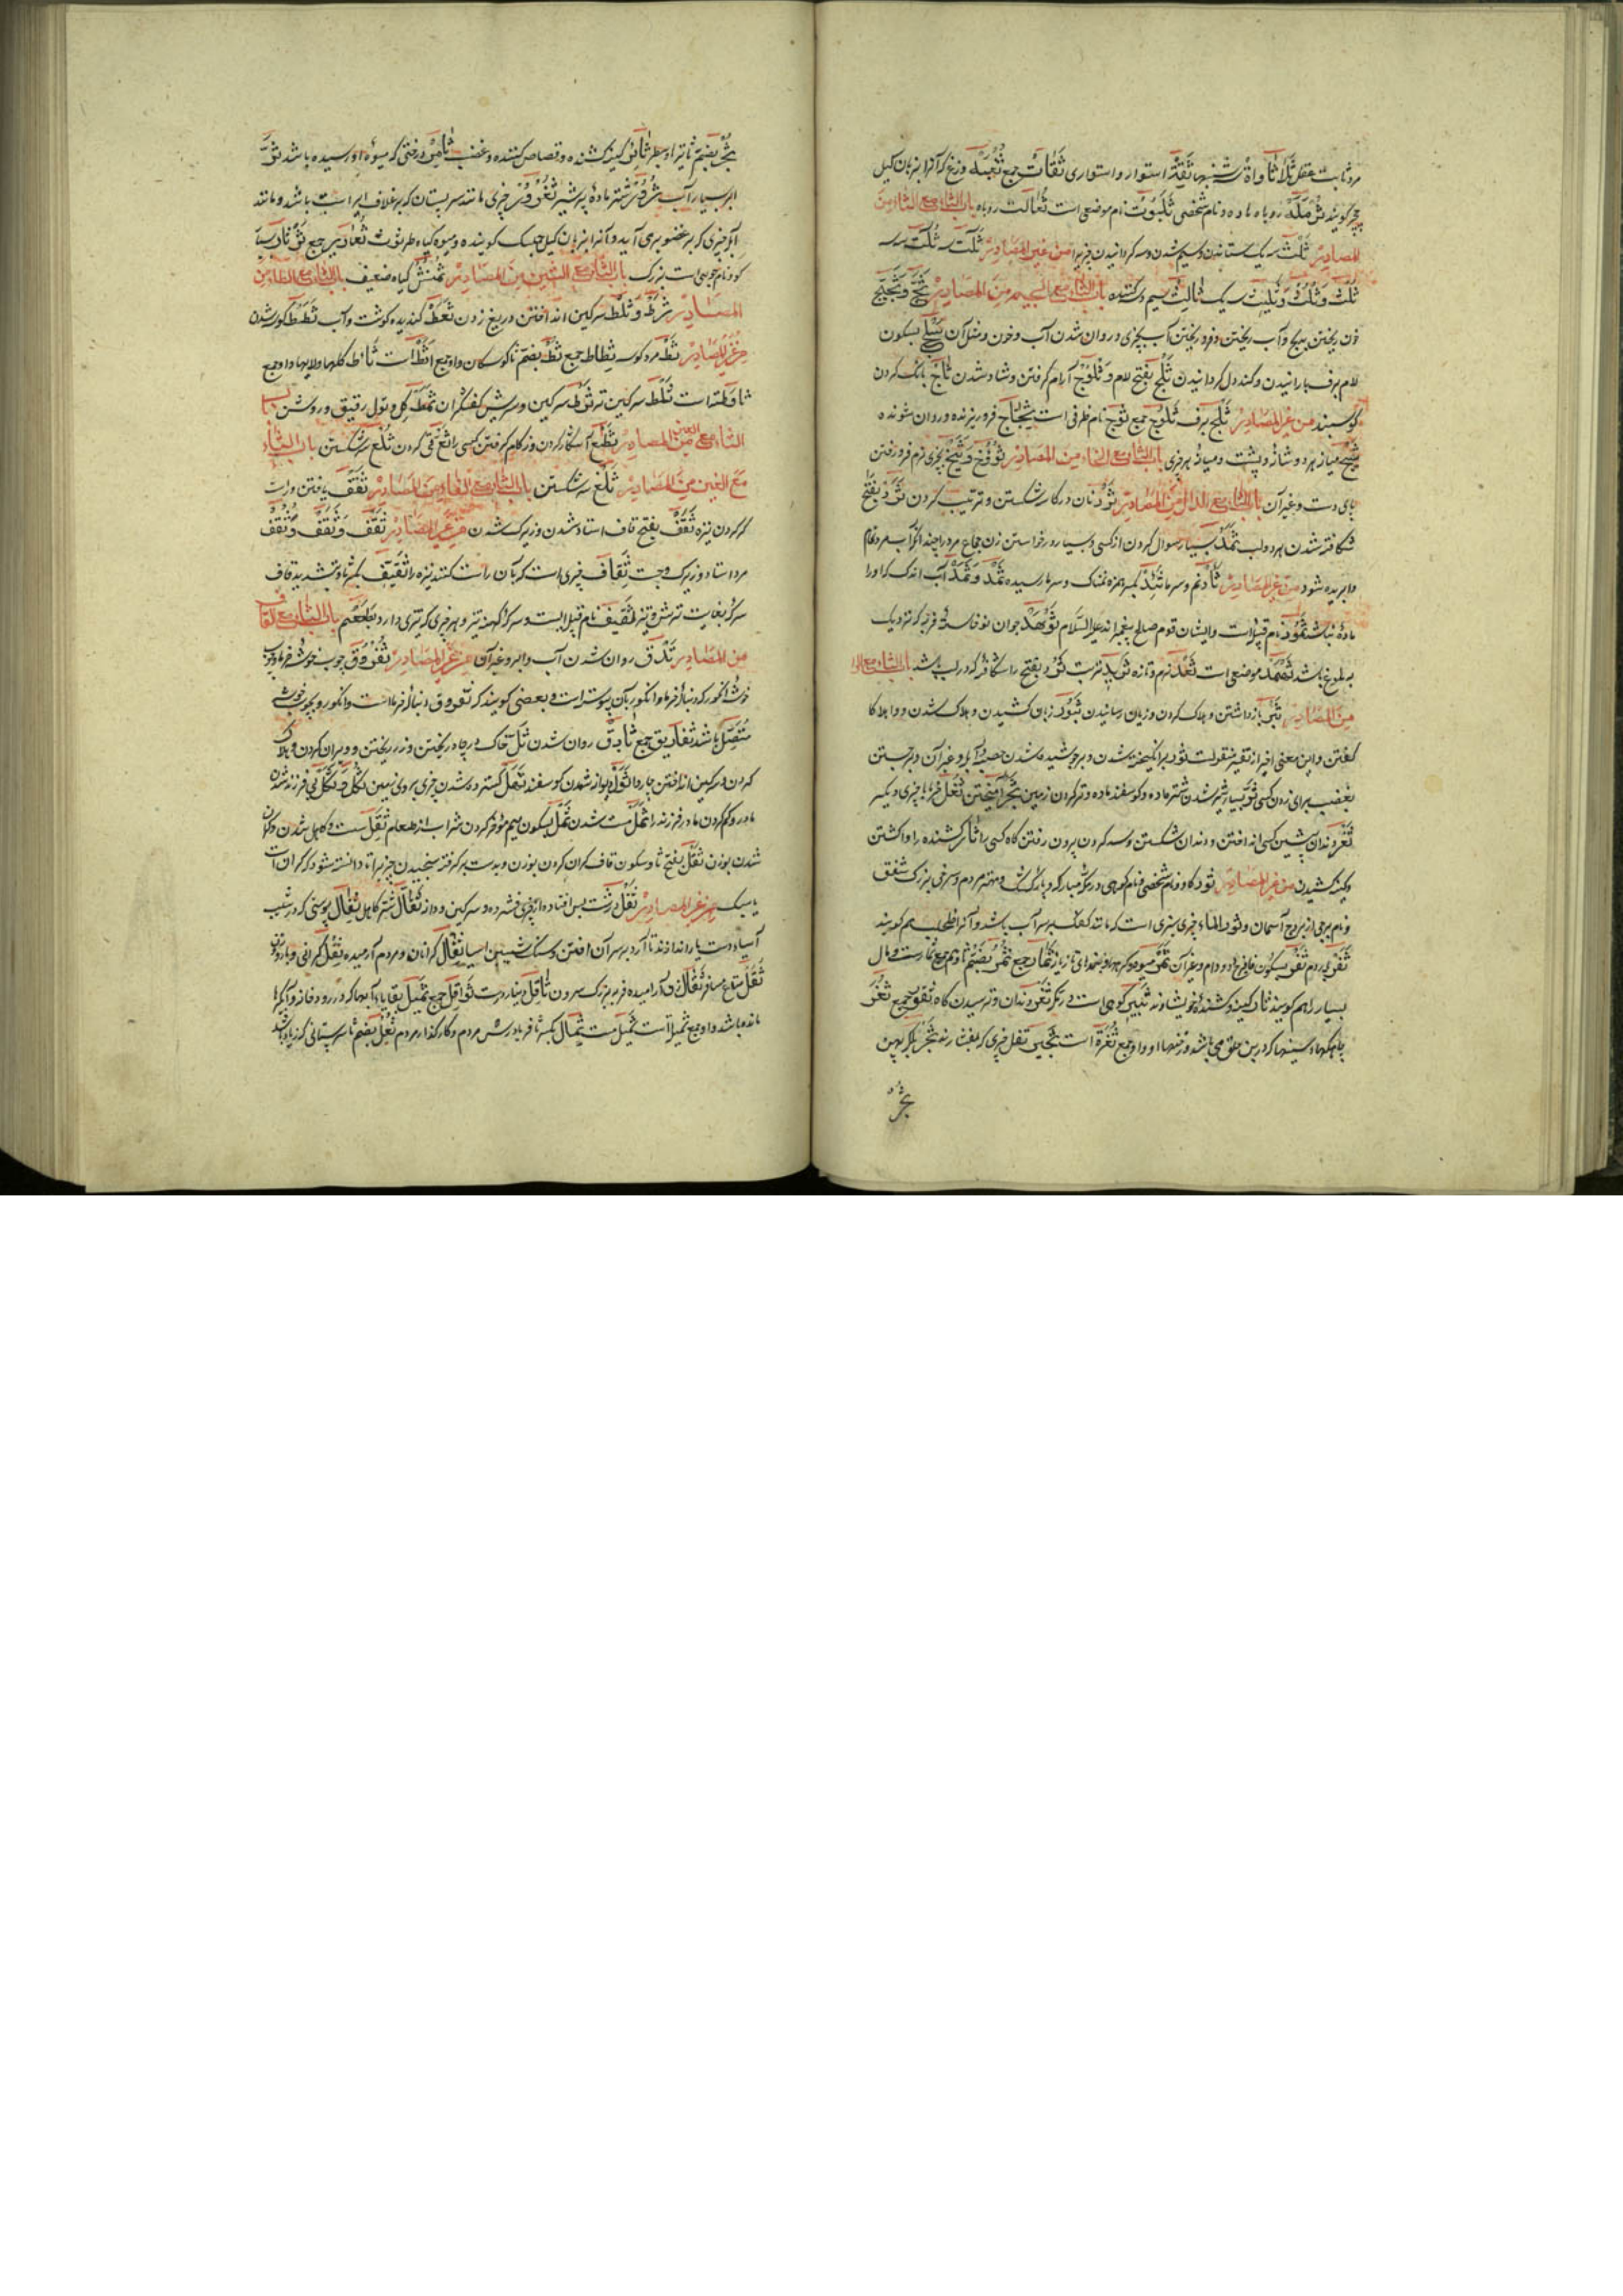 مرد ثابت عقل ثلاثا واه شنبه ثقة استوار و استواری ثقات جمع ثعبه وزغ که آنرا بزبان گیل
چچر گویند ثرمله روباه ماده و نام شخصی ثلبوت نام موضعی است ثعالب روباه باب الثاء مع الثاء من
المصادر ثلث سه یک ستاندن و سیم شدن و سه گردانیدن چیزیرا من غیر المصادر ثلث سه ثلث سه
ثلث و ثلث و ثلیث سه یک ثالث سیم و کننده باب الثاء مع الجیم من المصادر ثج و ثجیج
خون ریختن و آب ریختن و فرو ریختن آب بچیزی و روان شدن آب و خون و مثل آن ثلج بسکون
لام برف بارانیدن و کند دل گردانیدن ثلج بفتح لام و ثلوج آرام گرفتن و شاد شدن ثاج بانگ کردن
گوسپند من غیر المصادر ثلج برف ثلوج جمع ثوج نام ظرفی است ثجاج فرو ریزنده و روان شونده
ثبج میانه هر دو شانه و پشت و میانه هر چیزی باب الثاء مع الخاء من المصادر ثوخ و ثیخ بچیزی نرم فرو رفتن
پای دست و غیر آن باب الثاء مع الدال من المصادر ثرد نان در کاسه شکستن و ترتیب کردن ثرد بفتح
شکافته شدن هر دو لب ثمد بسیار سوال کردن از کسی و بسیار درخواستن زن جماع مرد را چندانکه آب مرد تمام
وابریده شود من غیر المصادر ثأد نم و سرما ثئد بکسر همزه نمناک و سرما رسیده ثمد و ثمد آب اندک که او را
ماده نباشد ثمود نام قبیله است و ایشان قوم صالح پیغمبراند علیه السلام ثوهد جوان نوخاسته فربه که نزدیک
به بلوغ باشد ثهمد موضعی است ثعد نرم و تازه ثرید تربت ثرد بفتح را شکافی که در لب باشد باب الثاء مع الراء
من المصادر ثبر باز داشتن و هلاک کردن و زیان رسانیدن ثبور زیان کشیدن و هلاک شدن و واهلاکا
گفتن و این معنی اخیر از تفسیر منقولست ثور برانگیخته شدن و برجوشیده شدن حصبه و آبله و غیر آن و برجستن
بغضب برای زدن کسی ثر بسیار شیر شدن شتر ماده و گوسفند ماده و تر کردن زمین ثجر آمیختن ثفل خرما با چیزی دیگر
ثغر دندان پیشین کسی انداختن و دندان شکستن و سد کردن بیرون رفتن گاه کسی را ثأر کشنده را واکشتن
و کینه کشیدن من غیر المصادر ثور گاو و نام شخصی و نام کوهی در مکه مبارکه و پاره کشک و مهتر مردم و سرخی بزرگ شفق
و نام برجی از بروج آسمان و ثور الماء چیزی سبزی است که مانند کفک بر سر آب باشد و آنرا طحلب هم گویند
ثفر پاردم ثفر بسکون فا فرج دد و دام و غیر آن ثمر میوه و گره سر تازیانه ثمار جمع ثمر بضم ثا و میم جمع ثمار است و مال
بسیار را هم گویند ثأر کینه و کشنده خویشاوند ثبیر کوهی است در مکه ثغر دندان و ترسیدن گاه ثغور جمع ثغر
چاهکها و سینها که در بن حلق می باشد و رخنها او و او جمع ثغرة است ثجیر ثفل چیزی که بفشارند ثجر پیکر پهن
ثجر
ثجر بضم ثا تیرها و سطبر ثائر کینه کشنده و قصاص کننده و غضب ثامر درختی که میوه او رسیده باشد ثر
ابر بسیار آب ثرور شتر ماده پر شیر ثغرور چیزی مانند سر پستان که بر غلاف ایر است باشد و مانند
آبله چیزی که بر عضو برمی آید و آنرا بزبان گیل جلک گویند و میوه گیاه طرثوث ثعاریر جمع ثرثار بسیار
گو و نام جوئی است بزرگ باب الثاء مع الشین من المصادر ثمنش گیاه ضعیف باب الثاء مع الطاء من
المصادر ثرط و ثلط سرگین انداختن و ریغ زدن ثعط گندیده گوشت و آب ثطط کوسه شدن
من غیر المصادر ثط مرد کوسه ثطاط جمع ثط بضم ثا کوسگان و او جمع اثط است ثاط گلها و لایها و او جمع
ثاطة است ثلط سرگین تر ثرط سرگین و سریش کفشگران ثمط گل و بول رقیق و روشن باب
الثاء مع العین من المصادر ثطع آشکار کردن و زکام گرفتن کسی را ثع قی کردن ثلع سر شکستن باب الثاء
مع الغین من المصادر ثلغ سر شکستن باب الثاء مع الفاء من المصادر ثقف یافتن و راست
کردن نیزه ثقف بفتح قاف استاد شدن و زیرک شدن من غیر المصادر ثقف و ثقف و ثقف
مرد استاد و زیرک و چست ثقاف چیزی است که بآن راست کنند نیزه را ثقیف بکسر ثا و تشدید قاف
سرکه بغایت ترش و تیز ثقیف نام قبیله ایست و سرکه کهنه تیز و هر چیزی که تیزی دارد بطعم باب الثاء مع القاف
من المصادر ثدق روان شدن آب و ابر و غیر آن من غیر المصادر ثفروق چوب خوشه خرما و چوب
خوشه انگور که دنباله خرما و انگور بآن پیوسته است و بعضی گویند که ثفروق دنباله خرما است و انگور و بچوب خوشه
متصل باشد ثفاریق جمع ثادق روان شدن ثل خاک در چاه ریختن و زر ریختن و ویران کردن و هلاک
کردن و سرگین انداختن چاروا ثول دیوانه شدن گوسفند ثعل گستر ده شدن چیزی بر روی زمین ثکل و ثکل بی فرزند شدن
مادر و گم کردن مادر فرزند را ثمل مست شدن ثمل بسکون میم مؤخر کردن شراب از طعام ثقل سست و کاهل شدن و گران
شدن بوزن ثقل بفتح ثا و سکون قاف گران کردن بوزن و بدست برگرفته سنجیدن چیزیرا تا دانسته شود که گران است
یا سبک من غیر المصادر ثفل درشت پس افتاده از چیزی فشرده و سرگین و دانه ثفال شتر کاهل ثفال پوستی که در شیب
آسیاء دست یا راندازند تا آرد بر سر آن افتد و سنگ شیبین آسیا ثقال گرانان و مردم آرمیده ثقل گرانی و بار و وزن
ثقل متاع مسافر ثقال زن آرامیده فربه بزرگ سرون ثاقل دینار درست ثواقل جمع ثمیل بقایاء آبها که در رودخانه و آبگیرها
مانده باشد و او جمع ثمیلة است ثمیل مست ثمال بکسر ثا فریادرس مردم و کارگذار مردم ثعل بضم ثا سر پستانی که زیاده باشد